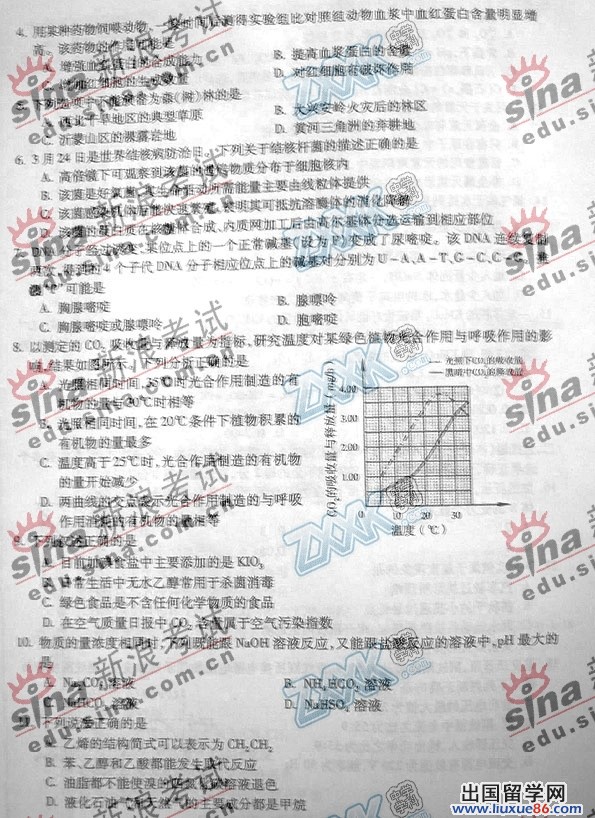 4. 用某种药物饲喂动物,一段时间后测得实验组比对照组动物血浆中血红蛋白含量明显增
高。该药物的作用可能是
A. 增强血红蛋白的合成能力
B. 提高血浆蛋白的含量
D. 对红细胞有破坏作用
5. 下列
为森(树)林的是
A. 西北干旱地区的典型草原
B. 大兴安岭火灾后的林区
C. 沂蒙山区的裸露岩地
D. 黄河三角洲的弃耕地
6. 3月24日是世界结核病防治日。下列关于结核杆菌的描述正确的是
A. 高倍镜下可观察到该菌的遗传物质分布于细胞核内
B. 该菌是好氧菌,其生命活动所需能量主要由线粒体提供
C. 该菌感染机体后能快速繁殖,表明其可抵抗溶菌体的消化降解
D. 该菌的蛋白质在核糖体合成、内质网加工后由高尔基体分选运输到相应部位
某位点上的一个正常碱基(设为P)变成了尿嘧啶。该DNA连续复制
两次,得到的4个子代DNA分子相应位点上的碱基对分别为U-A、A-T、G-C、C-G。推
测“P”可能是
A. 胸腺嘧啶
B. 腺嘌呤
C. 胸腺嘧啶或腺嘌呤
D. 胞嘧啶
8. 以测定的CO₂吸收量与释放量为指标,研究温度对某绿色植物光合作用与呼吸作用的影
响,结果如图所示。下列分析正确的是
A. 光照相同时间,35℃时光合作用制造的有
机物的量与30℃时相等
B. 光照相同时间,在20℃条件下植物积累的
有机物的量最多
C. 温度高于25℃时,光合作用制造的有机物
的量开始减少
D. 两曲线的交点表示光合作用制造的与呼吸
作用消耗的有机物的量相等
光照下CO₂的吸收量
黑暗中CO₂的释放量
CO₂的吸收量与释放量(mg/h)
4.00
3.00
2.00
1.00
0 10 20 30
温度(℃)
9. 下列叙述正确的是
A. 目前加碘食盐中主要添加的是KIO₃
B. 日常生活中无水乙醇常用于杀菌消毒
C. 绿色食品是不含任何化学物质的食品
D. 在空气质量日报中CO₂含量属于空气污染指数
10. 物质的量浓度相同时,下列既能跟NaOH溶液反应,又能跟盐酸反应的溶液中,pH最大的
是
A. Na₂CO₃溶液
B. NH₄HCO₃溶液
C. NaHCO₃溶液
D. NaHSO₄溶液
11. 下列说法正确的是
A. 乙烯的结构简式可以表示为CH₂CH₂
B. 苯、乙醇和乙酸都能发生取代反应
C. 油脂都不能使溴的四氯化碳溶液退色
D. 液化石油气和天然气的主要成分都是甲烷
新浪考试
sina
edu.sina
ZXXK
学科网
出国留学网
www.liuxue86.com